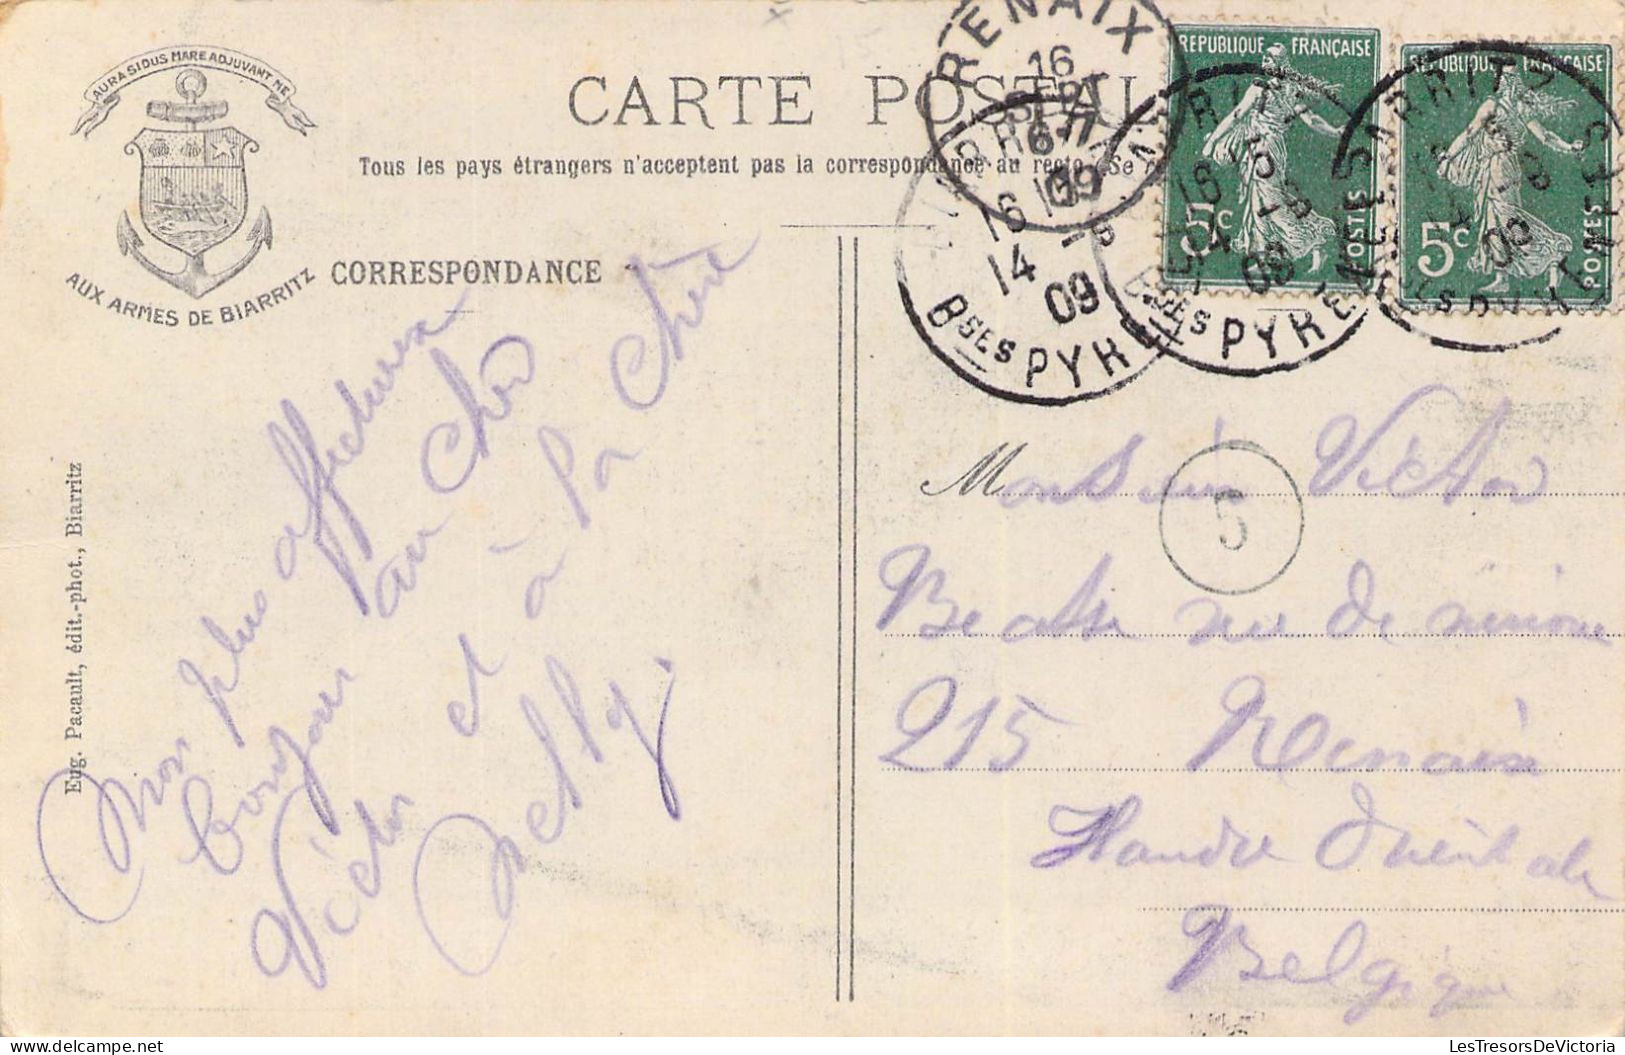 AURA SIDUS MARE ADJUVANT ME
AUX ARMES DE BIARRITZ
CARTE POSTAL
Tous les pays étrangers n'acceptent pas la correspondance au recto. (Se
CORRESPONDANCE
RENAIX
16
SEPT
6-7
1909
BIARRITZ
16
14 -9
09
BSES PYR
REPUBLIQUE FRANÇAISE
5c
POSTES
REPUBLIQUE FRANÇAISE
5c
POSTES
BIARRITZ
16
14
09
BSES PYRENEES
BARRITZ
09
PYRENEES
Eug. Pacault, édit.-phot., Biarritz
Mon plus affectueux
bonjour au cher
Victor et à la chère
Nelly.
Monsieur Victor
5
rue de
215 Renaix
Flandre Orientale
Belgique
LesTresorsDeVictoria.com